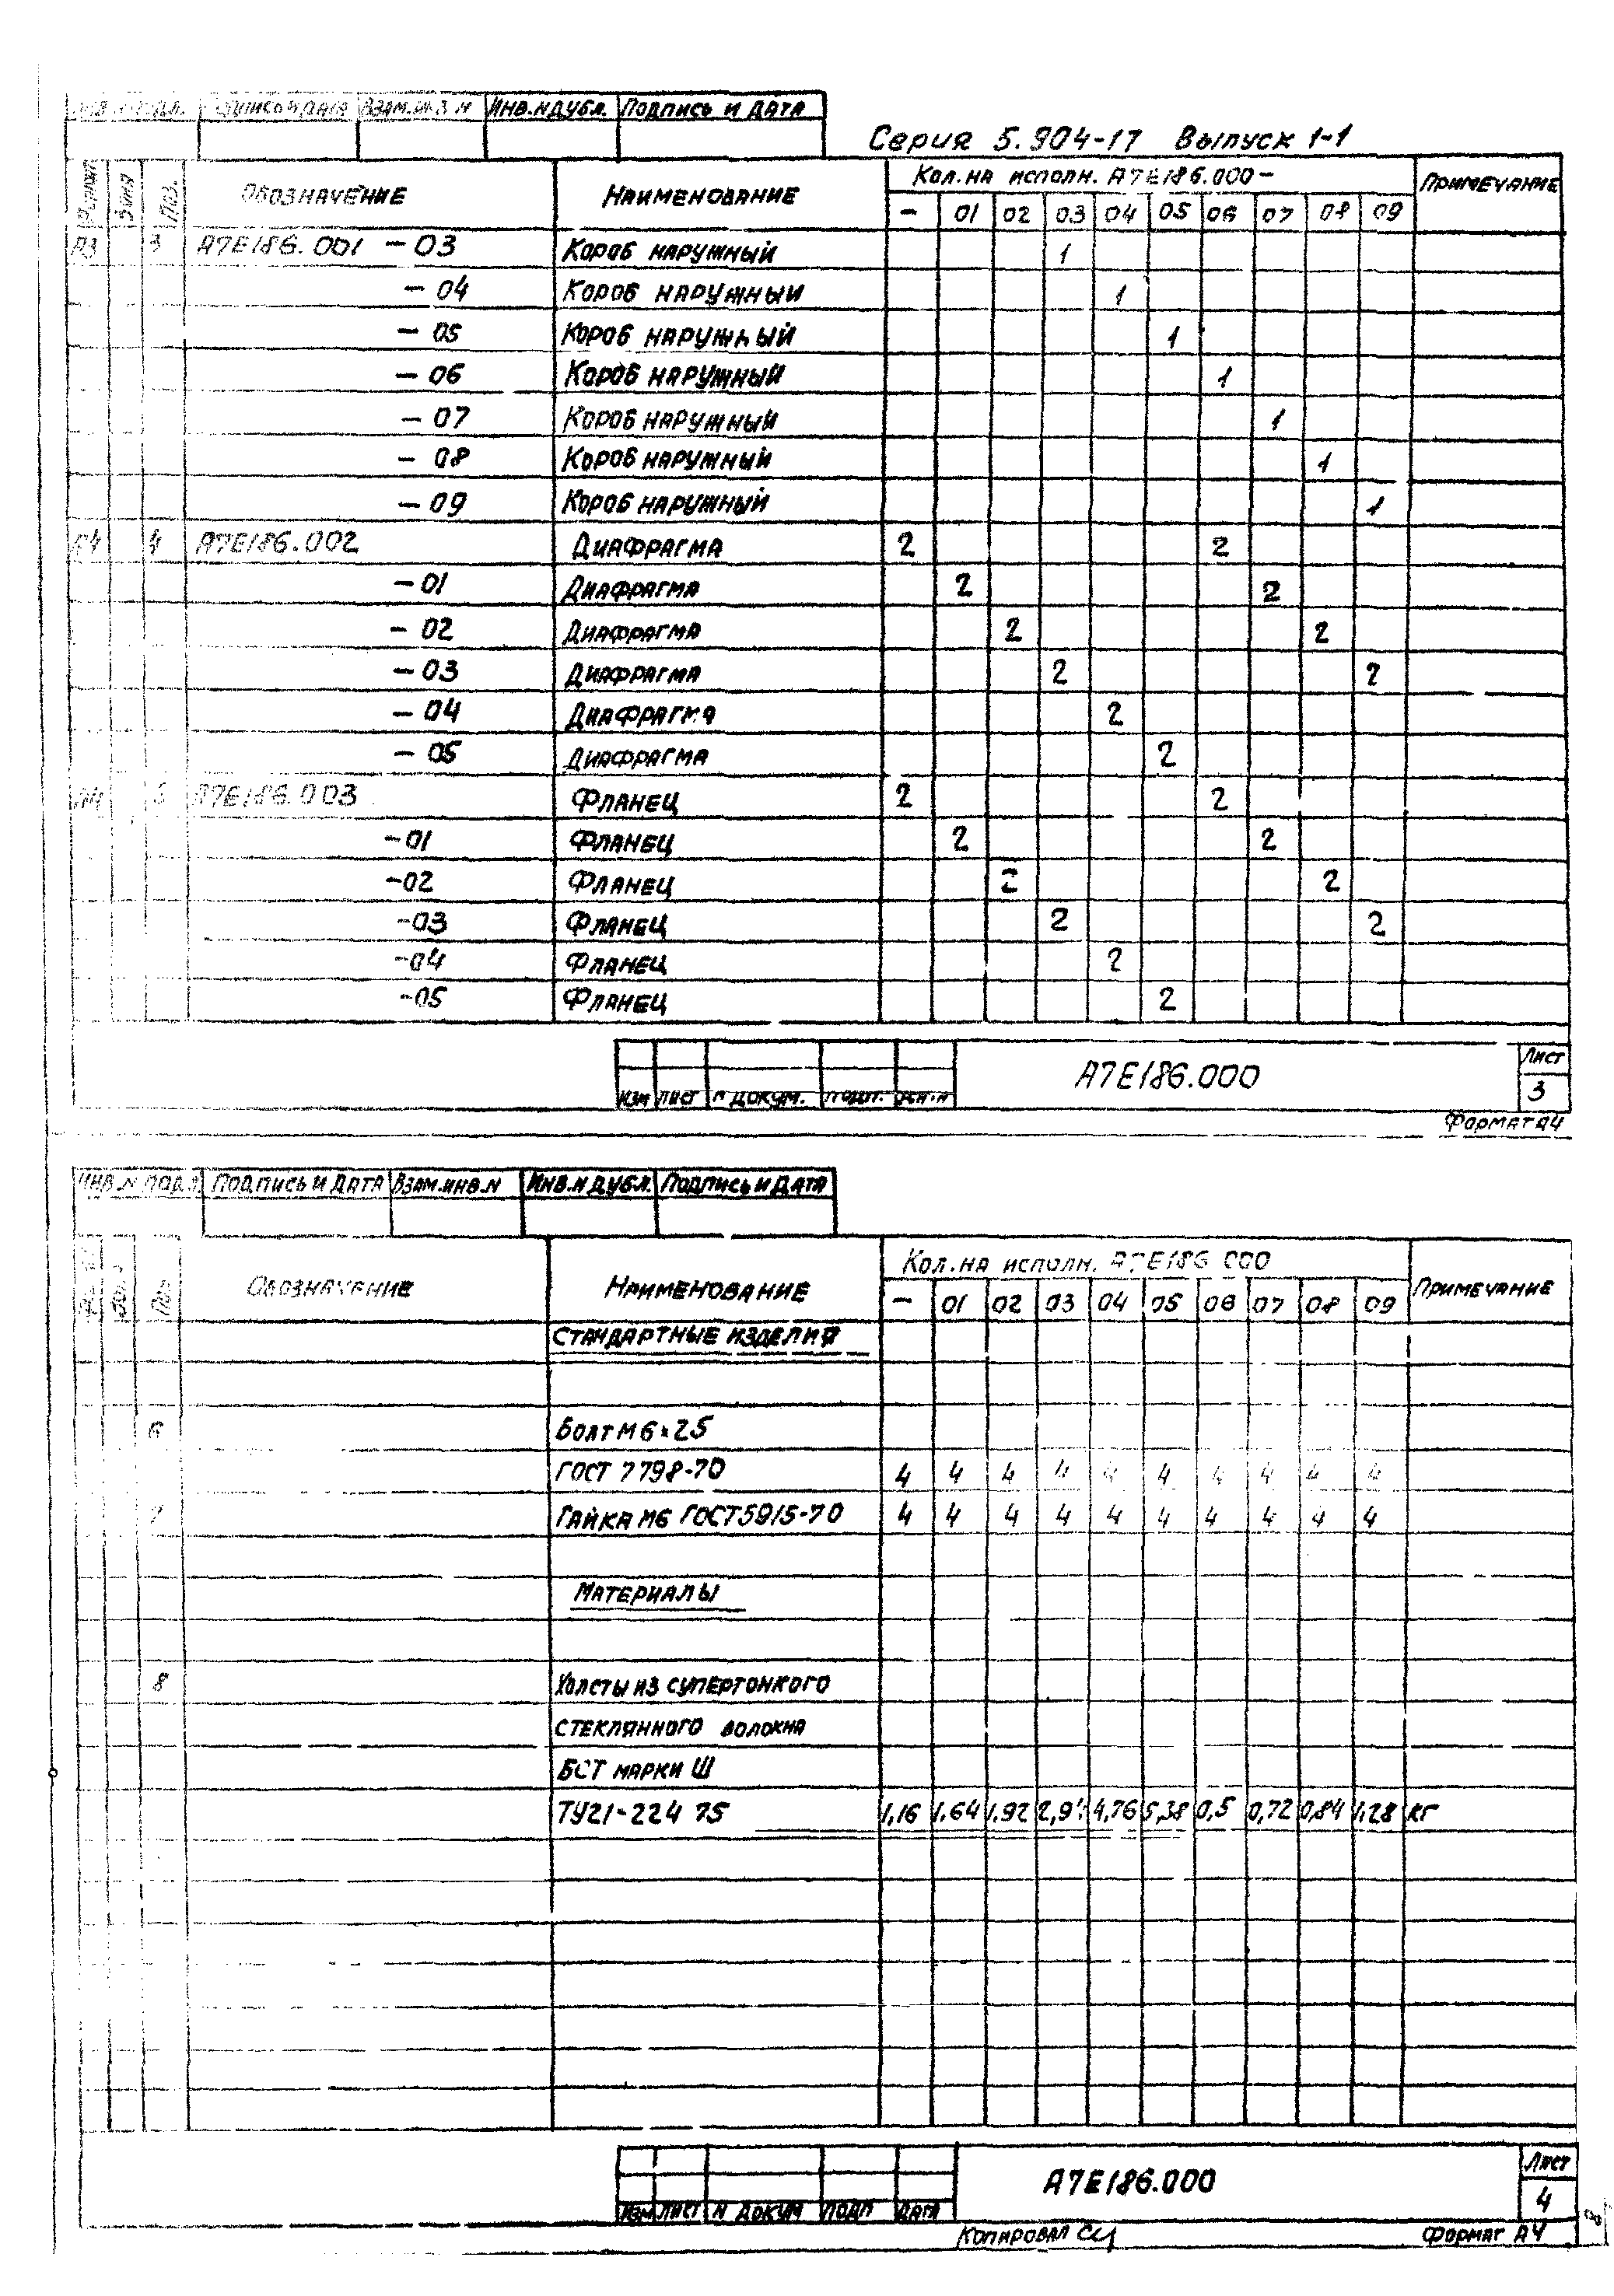 Подпись и дата Взам.инв.N Инв.N дубл. Подпись и дата
Серия 5.904-17 Выпуск 1-1
Формат Зона Поз. Обозначение Наименование Кол. на исполн. А7Е186.000- Примечание
- 01 02 03 04 05 06 07 08 09
А3 3 А7Е186.001 - 03 Короб наружный 1
- 04 Короб наружный 1
- 05 Короб наружный 1
- 06 Короб наружный 1
- 07 Короб наружный 1
- 08 Короб наружный 1
- 09 Короб наружный 1
А4 4 А7Е186.002 Диафрагма 2 2
- 01 Диафрагма 2 2
- 02 Диафрагма 2 2
- 03 Диафрагма 2 2
- 04 Диафрагма 2
- 05 Диафрагма 2
А4 А7Е186.003 Фланец 2 2
-01 Фланец 2 2
-02 Фланец 2 2
-03 Фланец 2 2
-04 Фланец 2
-05 Фланец 2
Изм Лист N докум. Подп. А7Е186.000 Лист
3
Формат А4
Инв.N подл. Подпись и дата Взам.инв.N Инв.N дубл. Подпись и дата
Поз Обозначение Наименование Кол. на исполн. А7Е186 000 Примечание
- 01 02 03 04 05 06 07 08 09
Стандартные изделия
6 Болт М6×25
ГОСТ 7798-70 4 4 4 4 4 4 4 4 4 4
7 Гайка М6 ГОСТ5915-70 4 4 4 4 4 4 4 4 4 4
Материалы
8 Холсты из супертонкого
стеклянного волокна
БСТ марки Ш
ТУ21-224 75 1,16 1,64 1,92 4,76 5,38 0,5 0,72 0,84 1,28 кг
Изм Лист N докум Подп Дата А7Е186.000 Лист
4
Копировал Формат А4